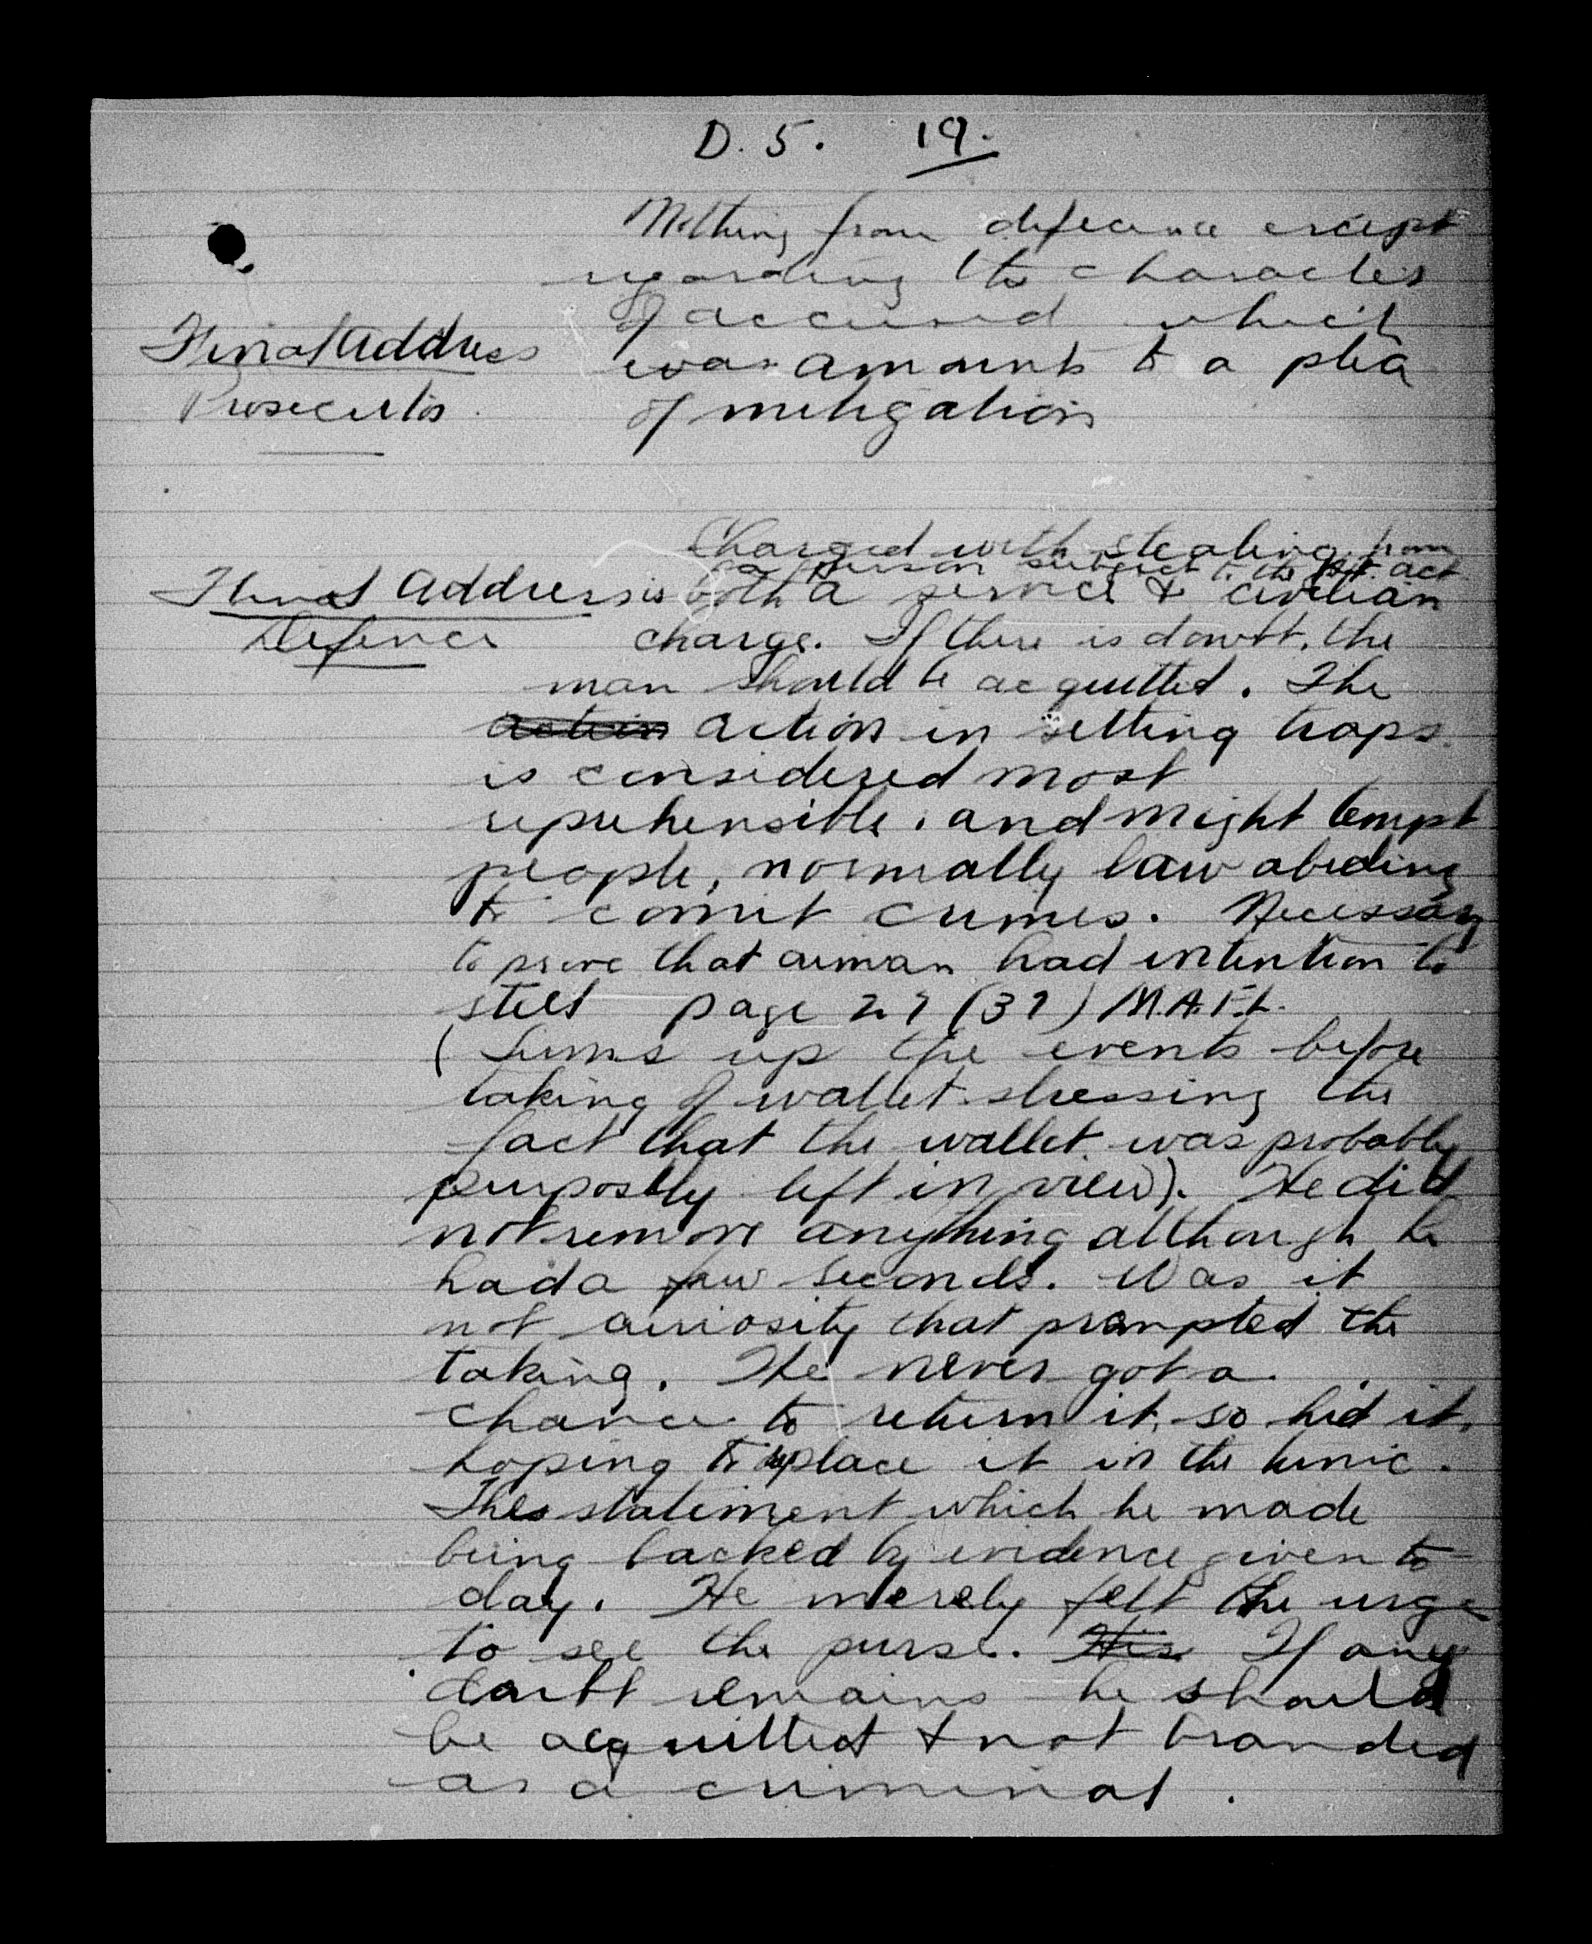 D. 5. 19.
Nothing from defence except
regarding the character
of accused which
Final Address
was amounts to a plea
Prosecutor
of mitigation
Charged with stealing from
a person subject to the A.F. act
Final Address is both a service & civilian
Defence charge. If there is doubt, the
man should be acquitted. The
action action in setting traps
is considered most
reprehensible, and might tempt
people, normally law abiding
to comit crimes. Necessary
to prove that airman had intention to
steel page 27 (37) M.A.F.L.
(Sums up the events before
taking of wallet stressing the
fact that the wallet was probably
purposely left in view). He did
not remove anything although he
had a few seconds. Was it
not curiosity that prompted the
taking. He never got a
chance to return it, so hid it,
hoping to replace it in the tunic.
The statement which he made
being backed by evidence given to
day. He merely felt the urge
to see the purse. His If any
doubt remains he should
be acquitted & not branded
as a criminal.